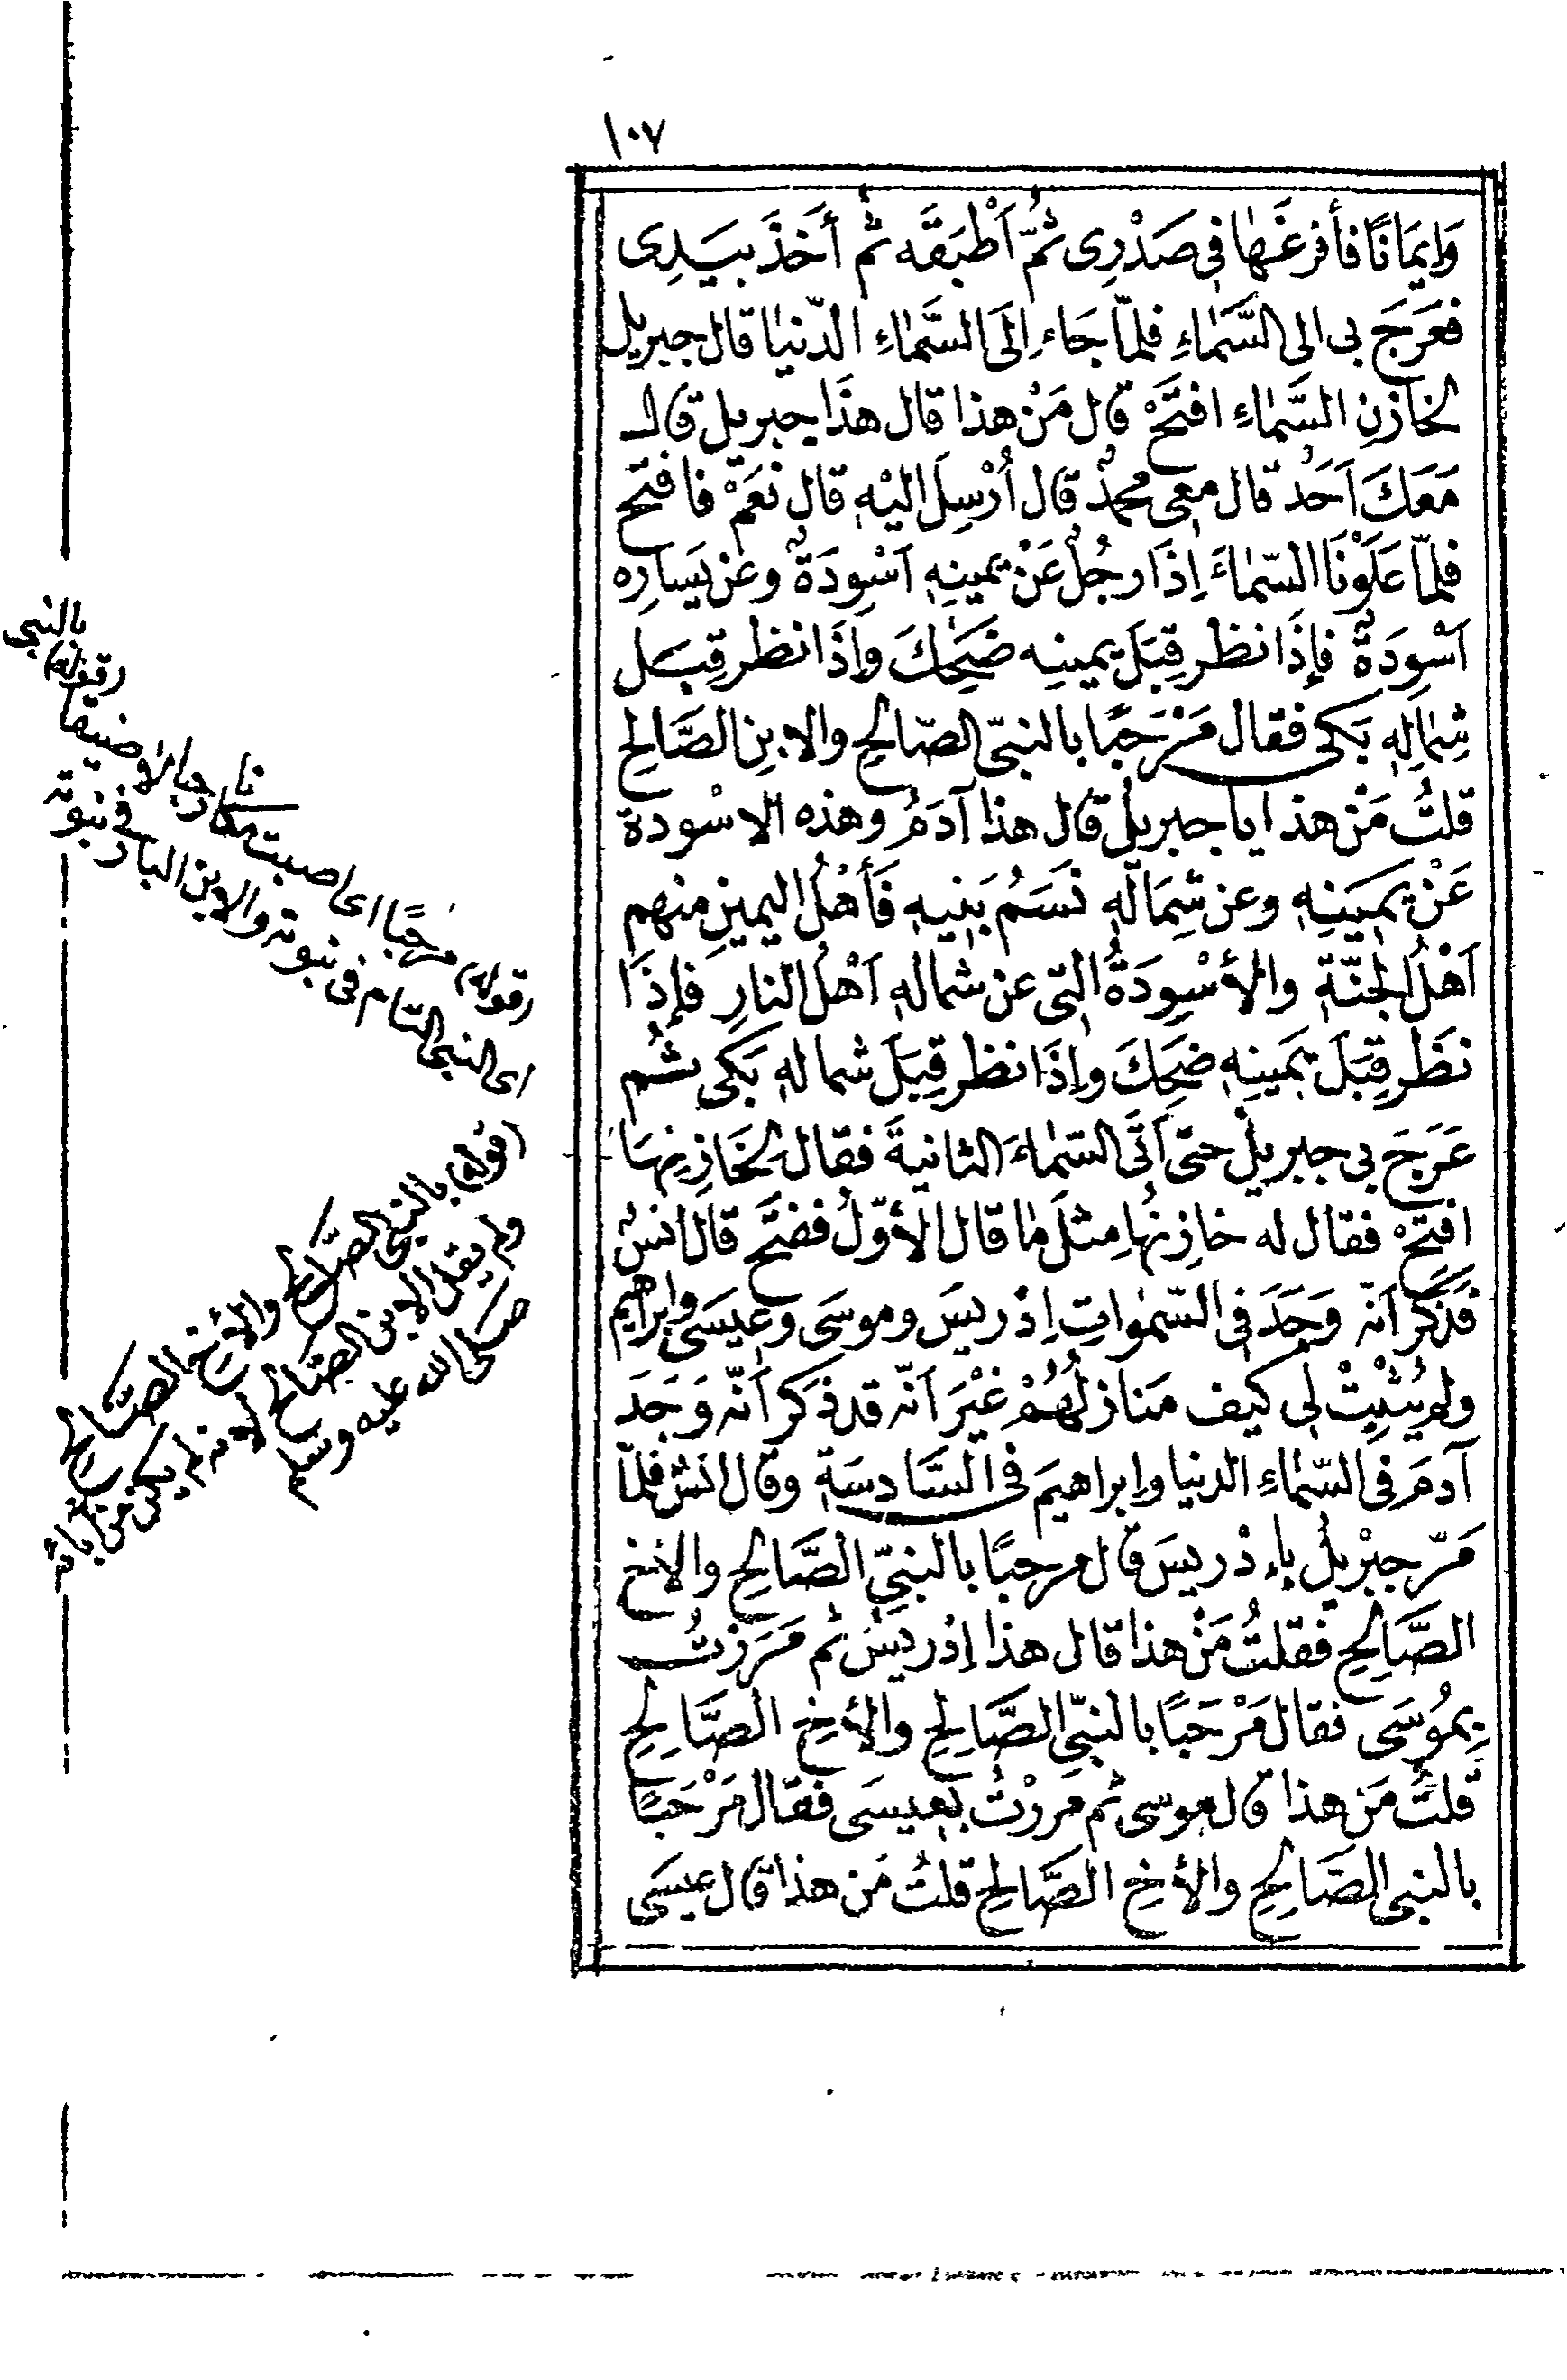 ١٠٧
وَإِيمَانًا فأفرغَها في صَدْرِى ثُمّ اَطْبَقَه ثم أَخَذَ بيَدِى
فعَرَجَ بى الى السَّمَاءِ فلمّا جَاء اِلَى السَّمَاءِ الدّنيا قال جبريل
لخازنِ السَّماءِ افتَحْ قال مَنْ هذا قال هذَا جبريل قال
مَعَكَ اَحَدٌ قال معى محمدٌ قال أُرْسِلَ اليْهِ قال نعَمْ فافتح
فلمّا عَلَوْنَا السّماءَ اِذَا رجُلٌ عَنْ يمينِهِ اَسْوِدَةٌ وعن يَسارِه
اَسْوِدَةٌ فإِذَا نظر قِبَلَ يمينِه ضَحِكَ وإِذَا نظر قِبَل
شِمالِهِ بَكى فقال مَرْحَبًا بالنبىّ الصّالحِ والابنِ الصَّالحِ
قلتُ مَنْ هذا ياجبريلُ قال هذا آدَمُ وهذه الاسْودة
عَنْ يَمينِهِ وعن شِمَالِهِ نَسَمُ بَنِيهِ فَأَهْلُ اليمينِ منهم
اَهْلُ الجنّةِ والأسْوِدَةُ التى عن شمالهِ اَهْلُ النارِ فإِذَا
نظَر قِبَلَ يَمينِهِ ضَحِكَ وإِذَا نظر قِبَلَ شمالهِ بَكى ثُم
عَرَجَ بى جبريلُ حتى أتَى السّماءَ الثانيةَ فقال لخَازِنِهَا
افتِحْ فقال له خازِنُها مِثلَ ما قال الأوّلُ ففتَح قال انسٌ
فَذكَر انّه وَجَدَ فى السّمواتِ اِدْريسَ وموسَى وعيسَى وابراهيم
ولم يُثْبِتْ لى كيف مَنازلُهُمْ غيْرَ اَنّه قد ذكَر اَنّه وَجَدَ
آدمَ فى السّماءِ الدنيا وابراهيمَ فى السَّادسَةِ وقال انسٌ فلمّا
مَرّ جبْريلُ بإدْريسَ قال مرحبًا بالنبِىّ الصَّالحِ والاخِ
الصَّالحِ فقلتُ مَنْ هذا قال هذا إدْريسُ ثم مَرَرْتُ
بِمُوسَى فقال مَرْحَبًا بالنبِّى الصَّالحِ والأخِ الصَّالِحِ
قلتُ مَن هذا قال موسى ثم مَررْتُ بعيسَى فقال مَرْحَبًا
بالنبى الصَّالِحِ والأخِ الصَّالحِ قلتُ مَن هذا قال عيسَى
(قوله) مرحبًا اى اصبت مكانا رحبا لا ضيقا (قوله) بالنبى
اى النبى التام فى نبوته والابن البار فى نبوته
(قوله) بالنبى الصّالح والأخ الصّالح
ولم يقل الابن الصّالح لانه لم يكن من آبائه
صلى الله عليه وسلم